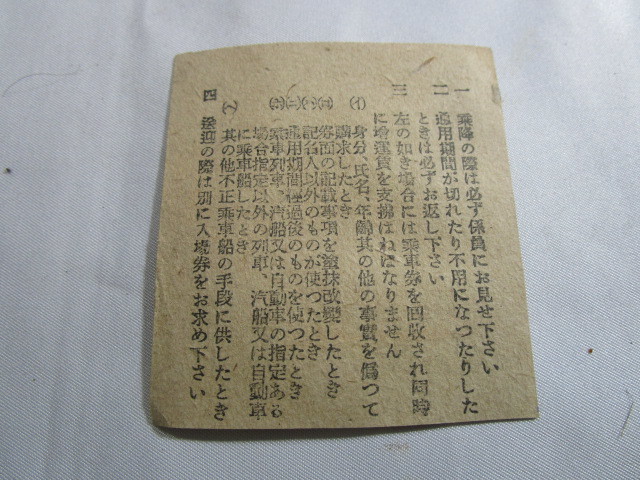 一 乘降の際は必ず係員にお見せ下さい
二 通用期間が切れたり不用になつたりした
ときは必ずお返し下さい
三 左の如き場合には乘車券を回收され同時
に增運賃を支拂はねばなりません
(イ) 身分、氏名、年齡其の他の事實を僞つて
請求したとき
(ロ) 券面の記載事項を塗抹改變したとき
(ハ) 記名人以外のものが使つたとき
(ニ) 通用期間經過後のものを使つたとき
(ホ) 乘車列車、汽船又は自動車の指定ある
場合指定以外の列車、汽船又は自動車
に乘車船したとき
(ヘ) 其の他不正乘車船の手段に供したとき
四 送迎の際は別に入場券をお求め下さい